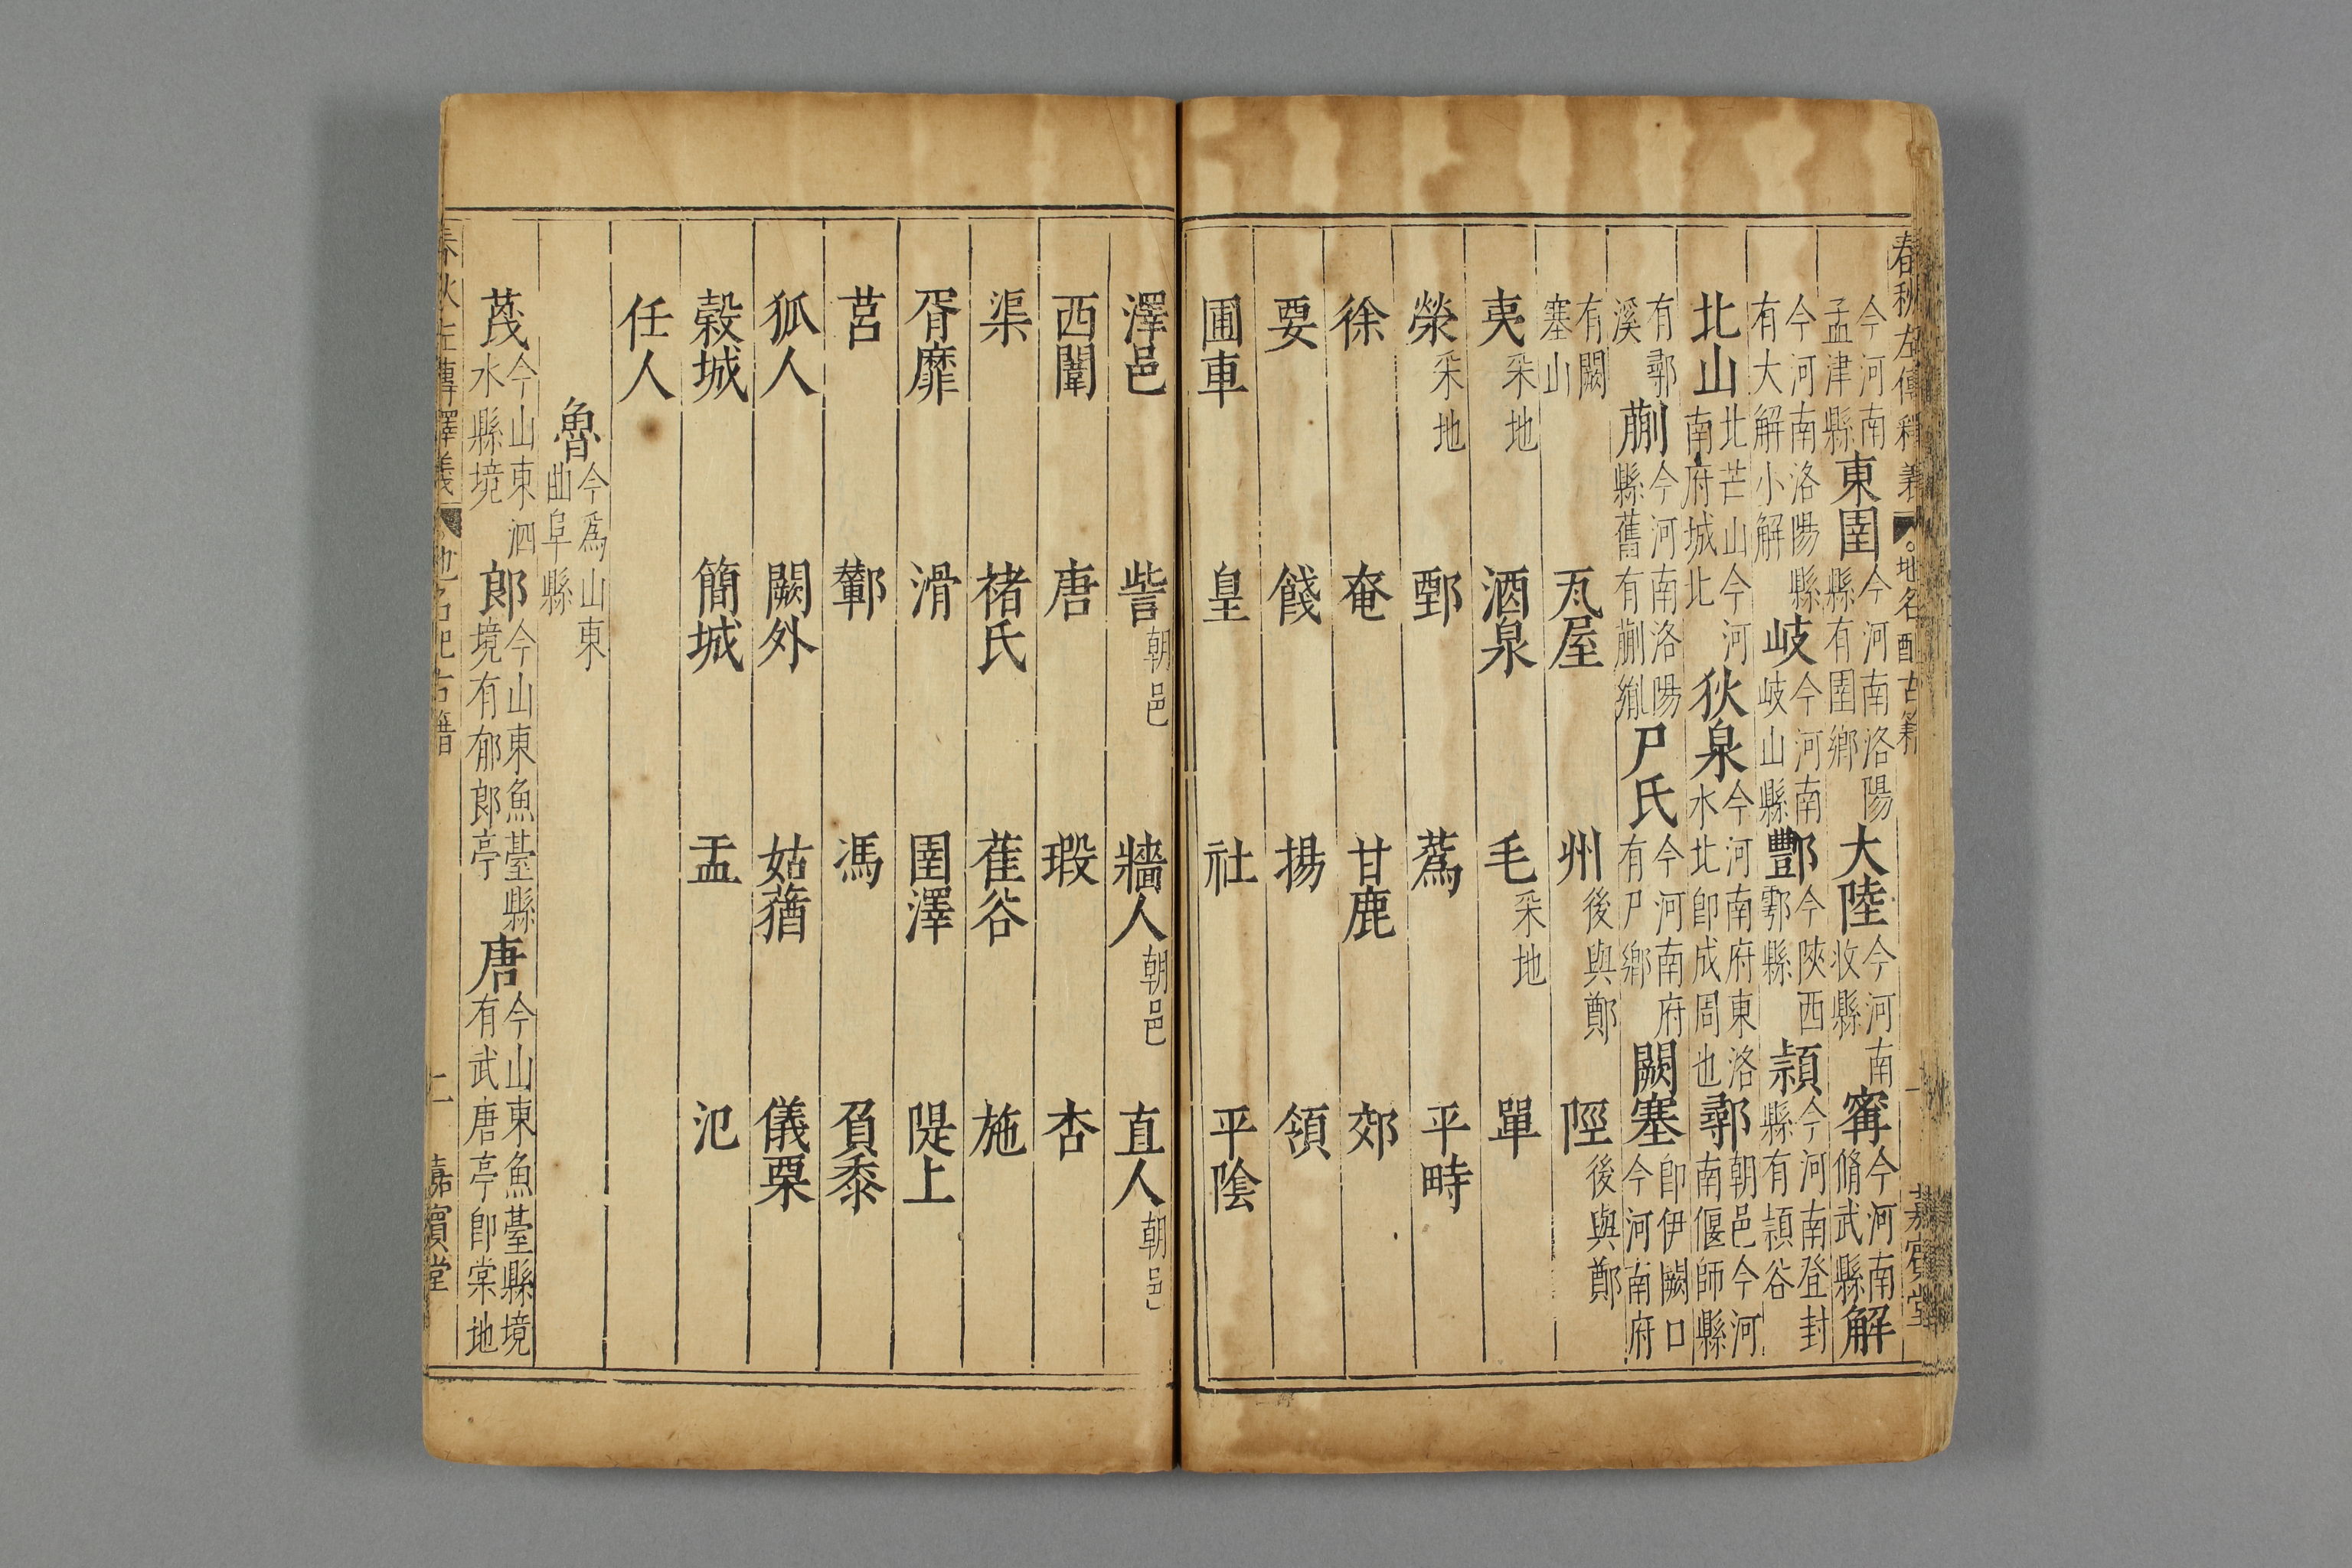 春秋左傳釋義 地名配古籍 一 嘉賓堂
今河南孟津縣 東圉 今河南洛陽縣有圉鄉 大陸 今河南收縣 甯 今河南脩武縣 解
今河南洛陽縣有大解小解 岐 今河南岐山縣 酆 今陜西鄠縣 潁 今河南登封縣有潁谷
北山 北芒山今河南府城北 狄泉 今河南府東洛水北即成周也 鄩 朝邑今河南偃師縣
有鄩溪 蒯 今河南洛陽縣舊有蒯鄉 尸氏 今河南府有尸鄉 闕塞 即伊闕口今河南府
有闕塞山 瓦屋 州 後與鄭 陘 後與鄭
夷 采地 酒泉 毛 采地 單
榮 采地 鄄 蔿 平畤
徐 奄 甘鹿 郊
要 餞 揚 領
圃車 皇 社 平陰
澤邑 訾 朝邑 牆人 朝邑 直人 朝邑
西闈 唐 瑕 杏
渠 褚氏 萑谷 施
胥靡 滑 圉澤 隄上
莒 鄻 馮 負黍
狐人 闕外 姑蕕 儀栗
穀城 簡城 盂 氾
任人
魯 今爲山東曲阜縣
茂 今山東泗水縣境 郎 今山東魚臺縣境有郁郎亭 唐 今山東魚臺縣境有武唐亭即棠地
春秋左傳釋義 地名配古籍 二 嘉賓堂